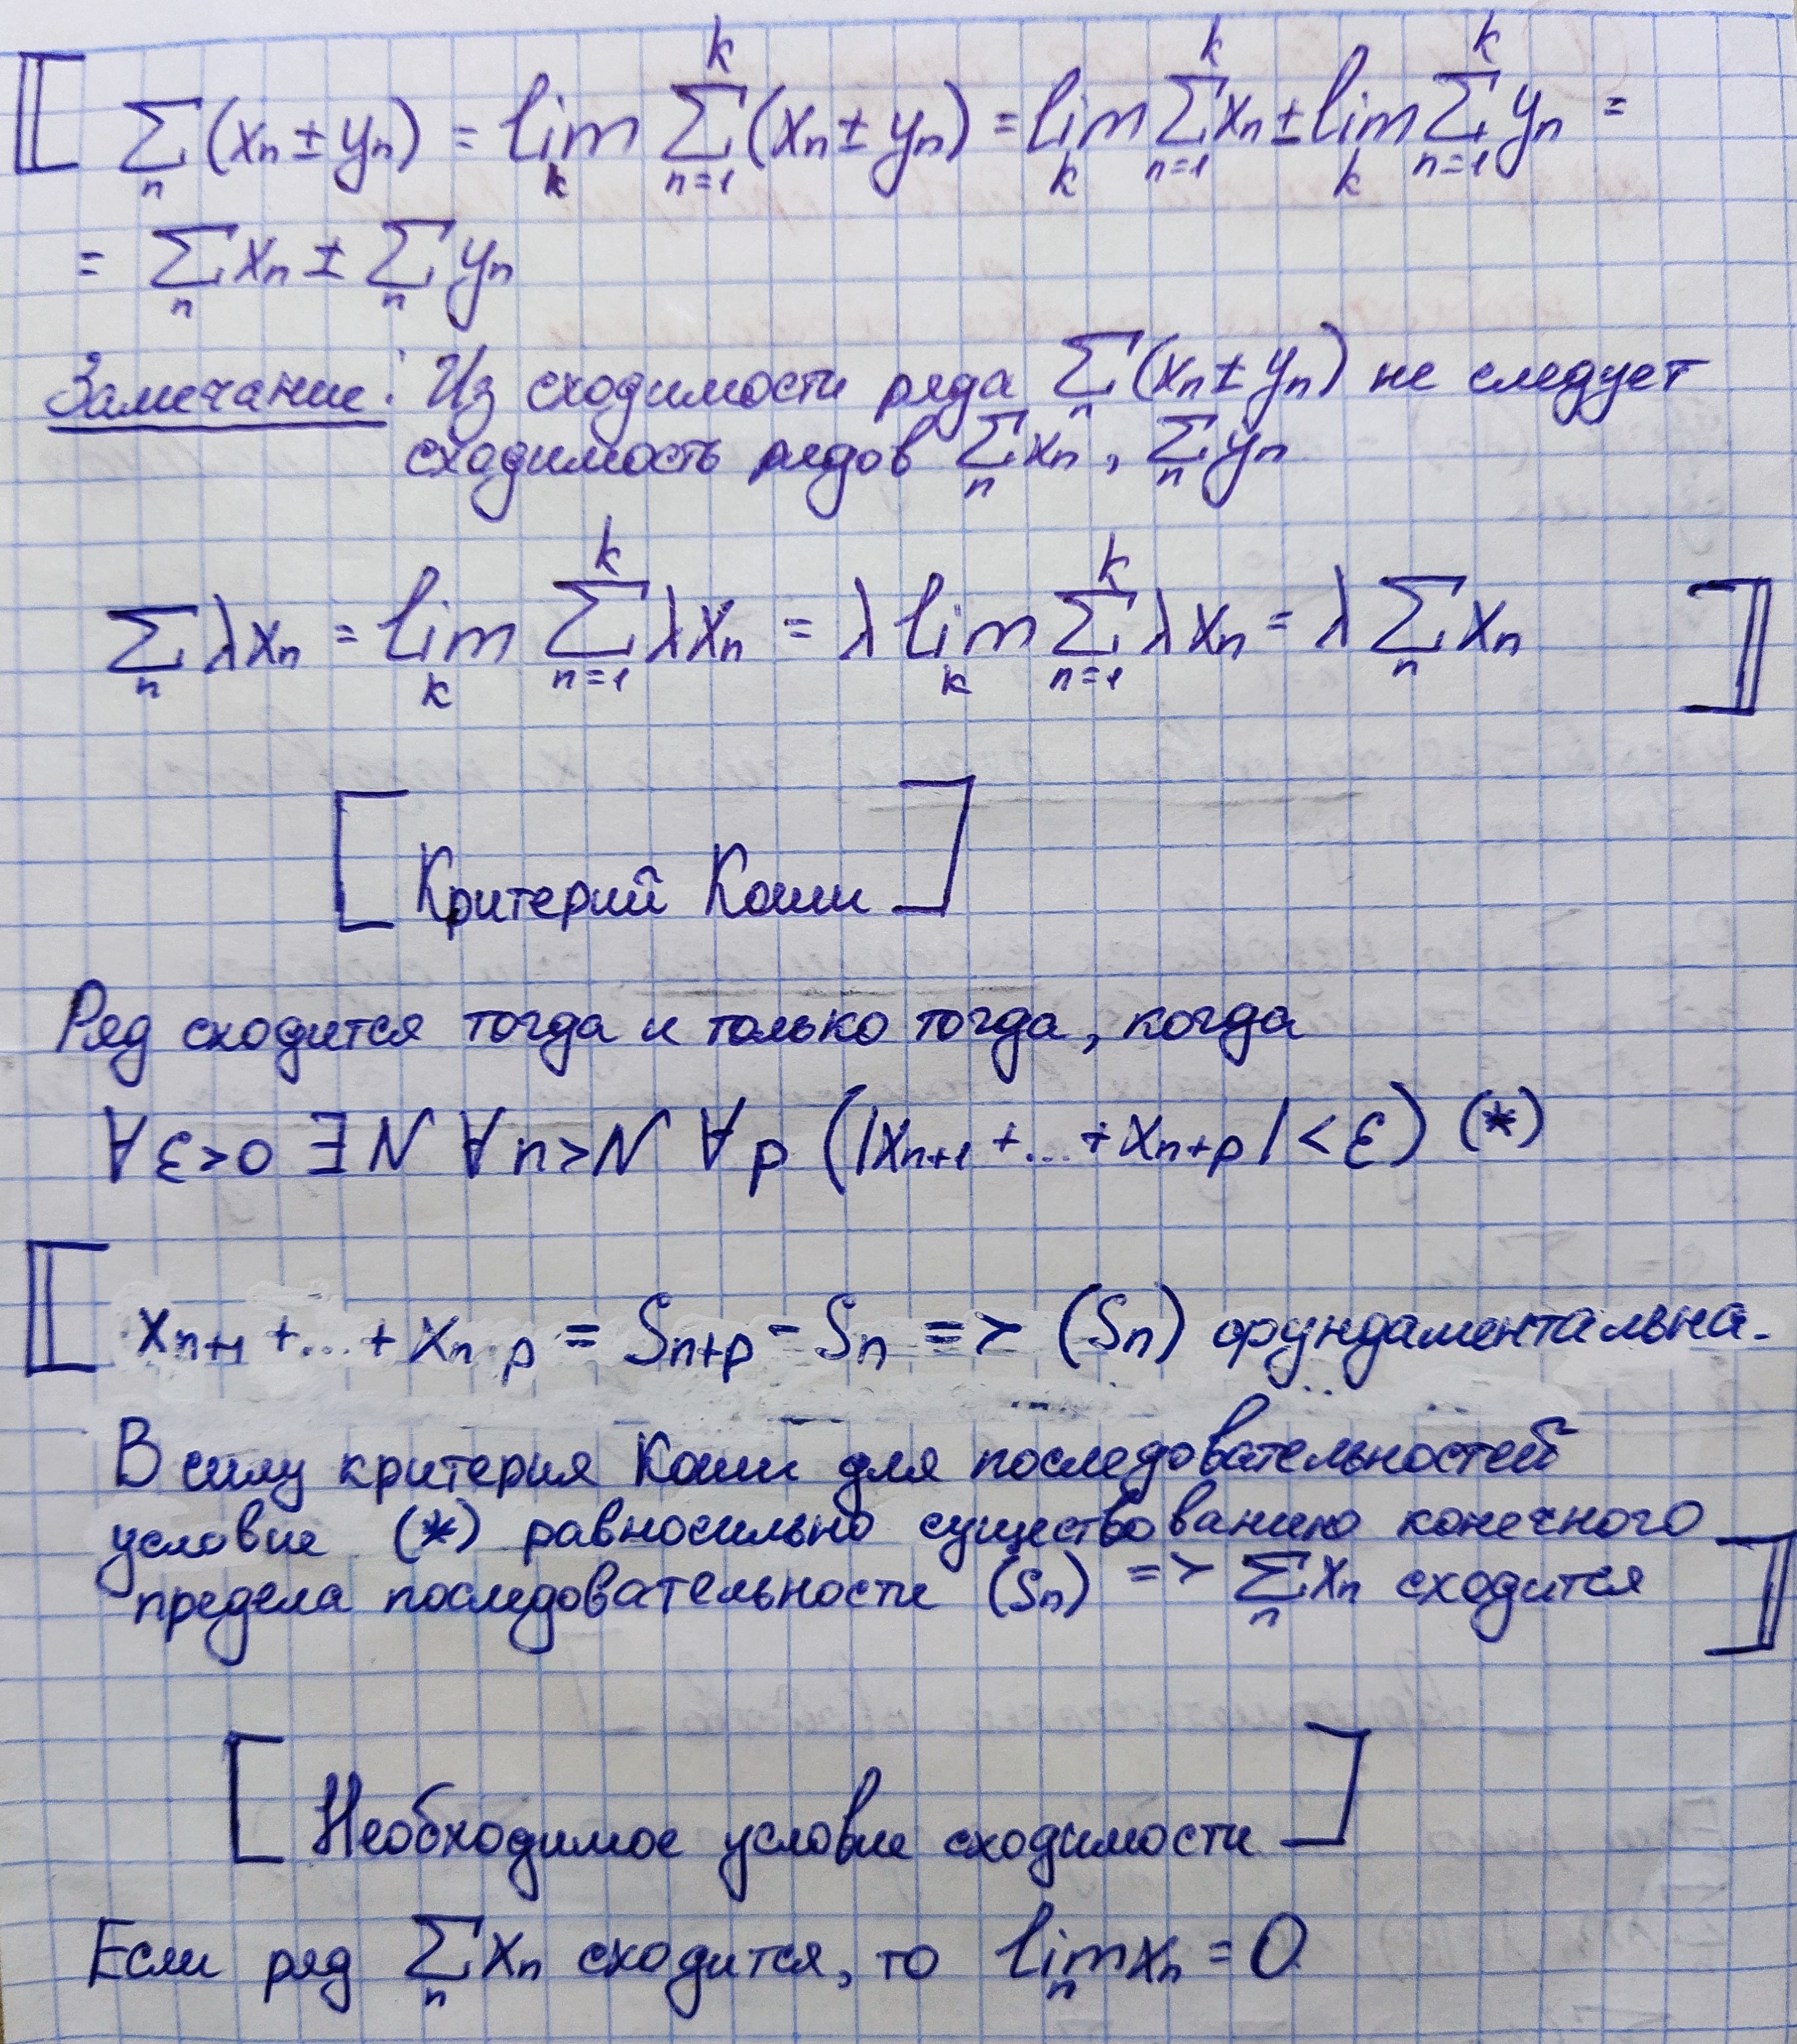 [[ Σ_n (xₙ ± yₙ) = lim_k Σ_{n=1}^k (xₙ ± yₙ) = lim_k Σ_{n=1}^k xₙ ± lim_k Σ_{n=1}^k yₙ =
= Σ_n xₙ ± Σ_n yₙ
Замечание: Из сходимости ряда Σ_n (xₙ ± yₙ) не следует
сходимость рядов Σ_n xₙ, Σ_n yₙ
Σ_n λxₙ = lim_k Σ_{n=1}^k λxₙ = λ lim_k Σ_{n=1}^k λxₙ = λ Σ_n xₙ ]]
[Критерий Коши]
Ряд сходится тогда и только тогда, когда
∀ε<0 ∃N ∀n>N ∀p (|xₙ₊₁ + ... + xₙ₊ₚ| < ε) (*)
[[ xₙ₊₁ + ... + xₙ ₚ = Sₙ₊ₚ - Sₙ => (Sₙ) фундаментальна.
В силу критерия Коши для последовательностей
условие (*) равносильно существованию конечного
предела последовательности (Sₙ) => Σ_n xₙ сходится ]]
[Необходимое условие сходимости]
Если ряд Σ_n xₙ сходится, то lim_n xₙ = 0